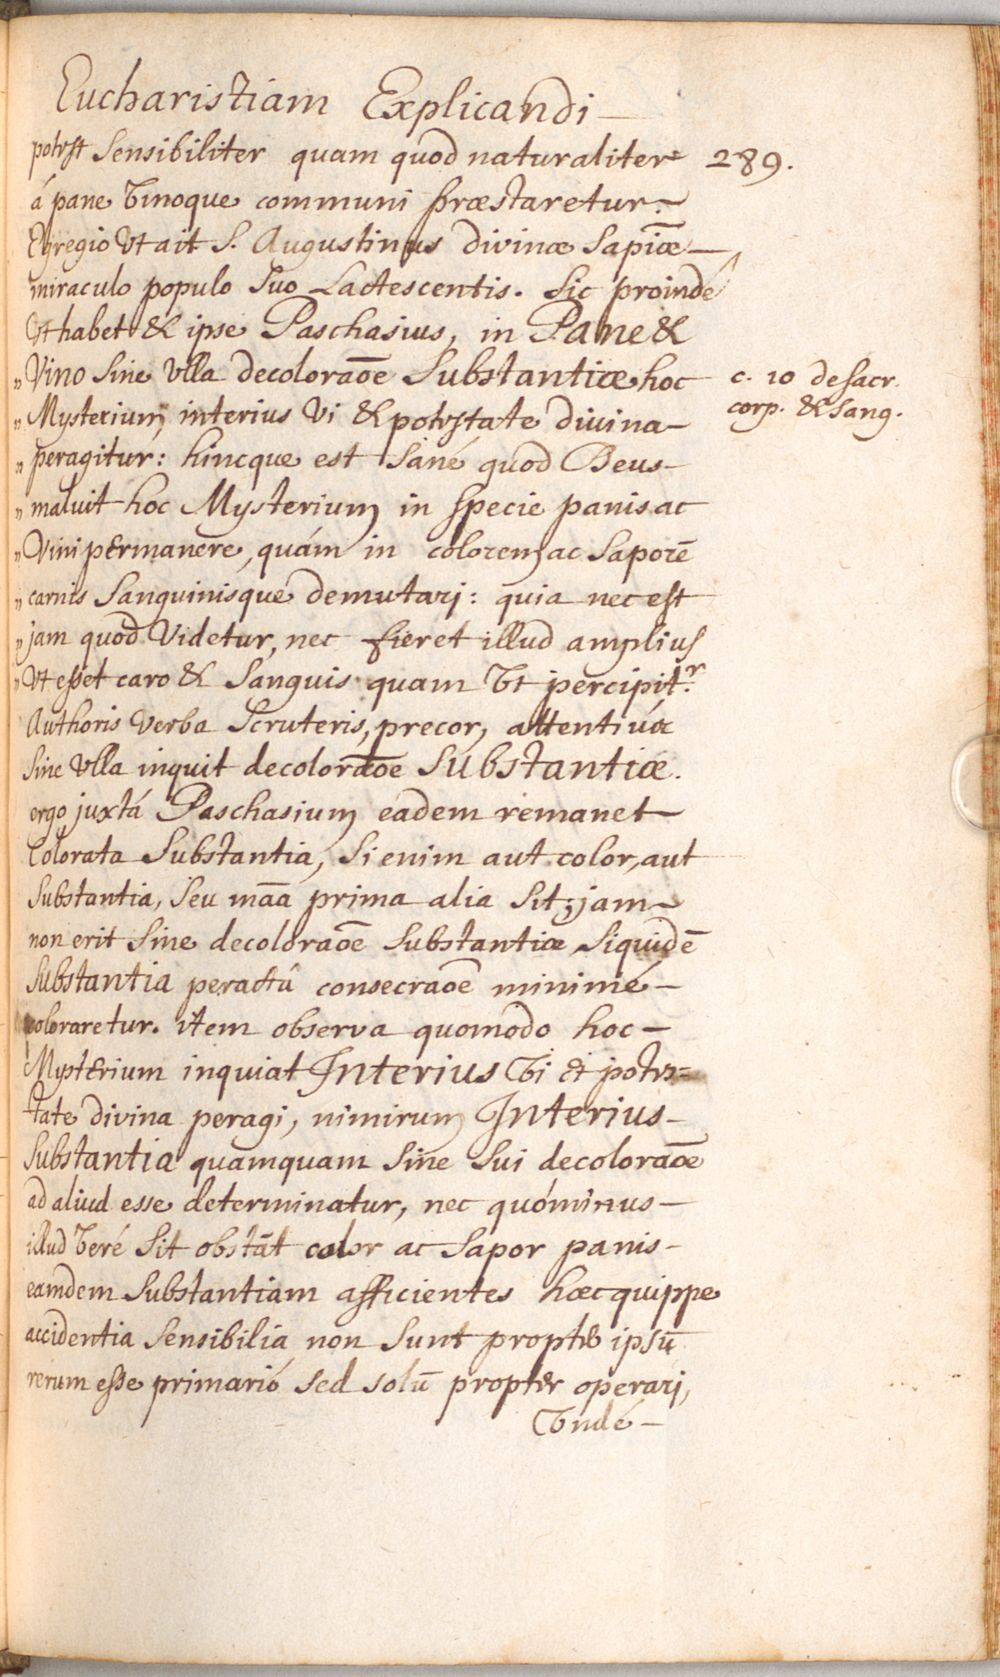 Eucharistiam Explicandi
289.
potest Sensibiliter quam quod naturaliter
á pane Vinoque communi præstaretur
Egregio Vt ait S. Augustinus divinæ Sapiæ
miraculo populo Suo Lactescentis. Sic proindé
Vt habet & ipse Paschasius, in Pane &
„ Vino Sine Vlla decoloraōe Substantiæ hoc
c. 10 de Sacr.
corp. & Sang.
„ Mysterium interius Vi & potestate divina
„ peragitur: hincque est Sané quod Deus
„ maluit hoc Mysterium in specie panis ac
„ Vini permanere, quám in colorem ac Saporē
„ carnis Sanguinisque demutari: quia nec est
„ jam quod Videtur, nec fieret illud amplius
„ Vt esset caro & Sanguis quam Vt percipitr.
Authoris Verba Scruteris, precor, attentivæ
Sine Vlla inquit decoloraōe Substantiæ.
ergo juxtá Paschasium eadem remanet
Colorata Substantia, Si enim aut color, aut
Substantia, Seu māa prima alia Sit, jam
non erit Sine decoloraōe Substantiæ Siquidē
Substantia peractâ consecraōe minimé
coloraretur. item observa quomodo hoc
Mysterium inquiat Interius Vi et potes=
tate divina peragi, nimirum Interius
Substantia quamquam Sine Sui decoloraōe
ad aliud esse determinatur, nec quóminus
illud Veré Sit obstāt color ac Sapor panis
eamdem Substantiam afficientes hæc quippe
accidentia Sensibilia non Sunt propter ipsū
rerum esse primarió Sed solū propter operari,
Vndé